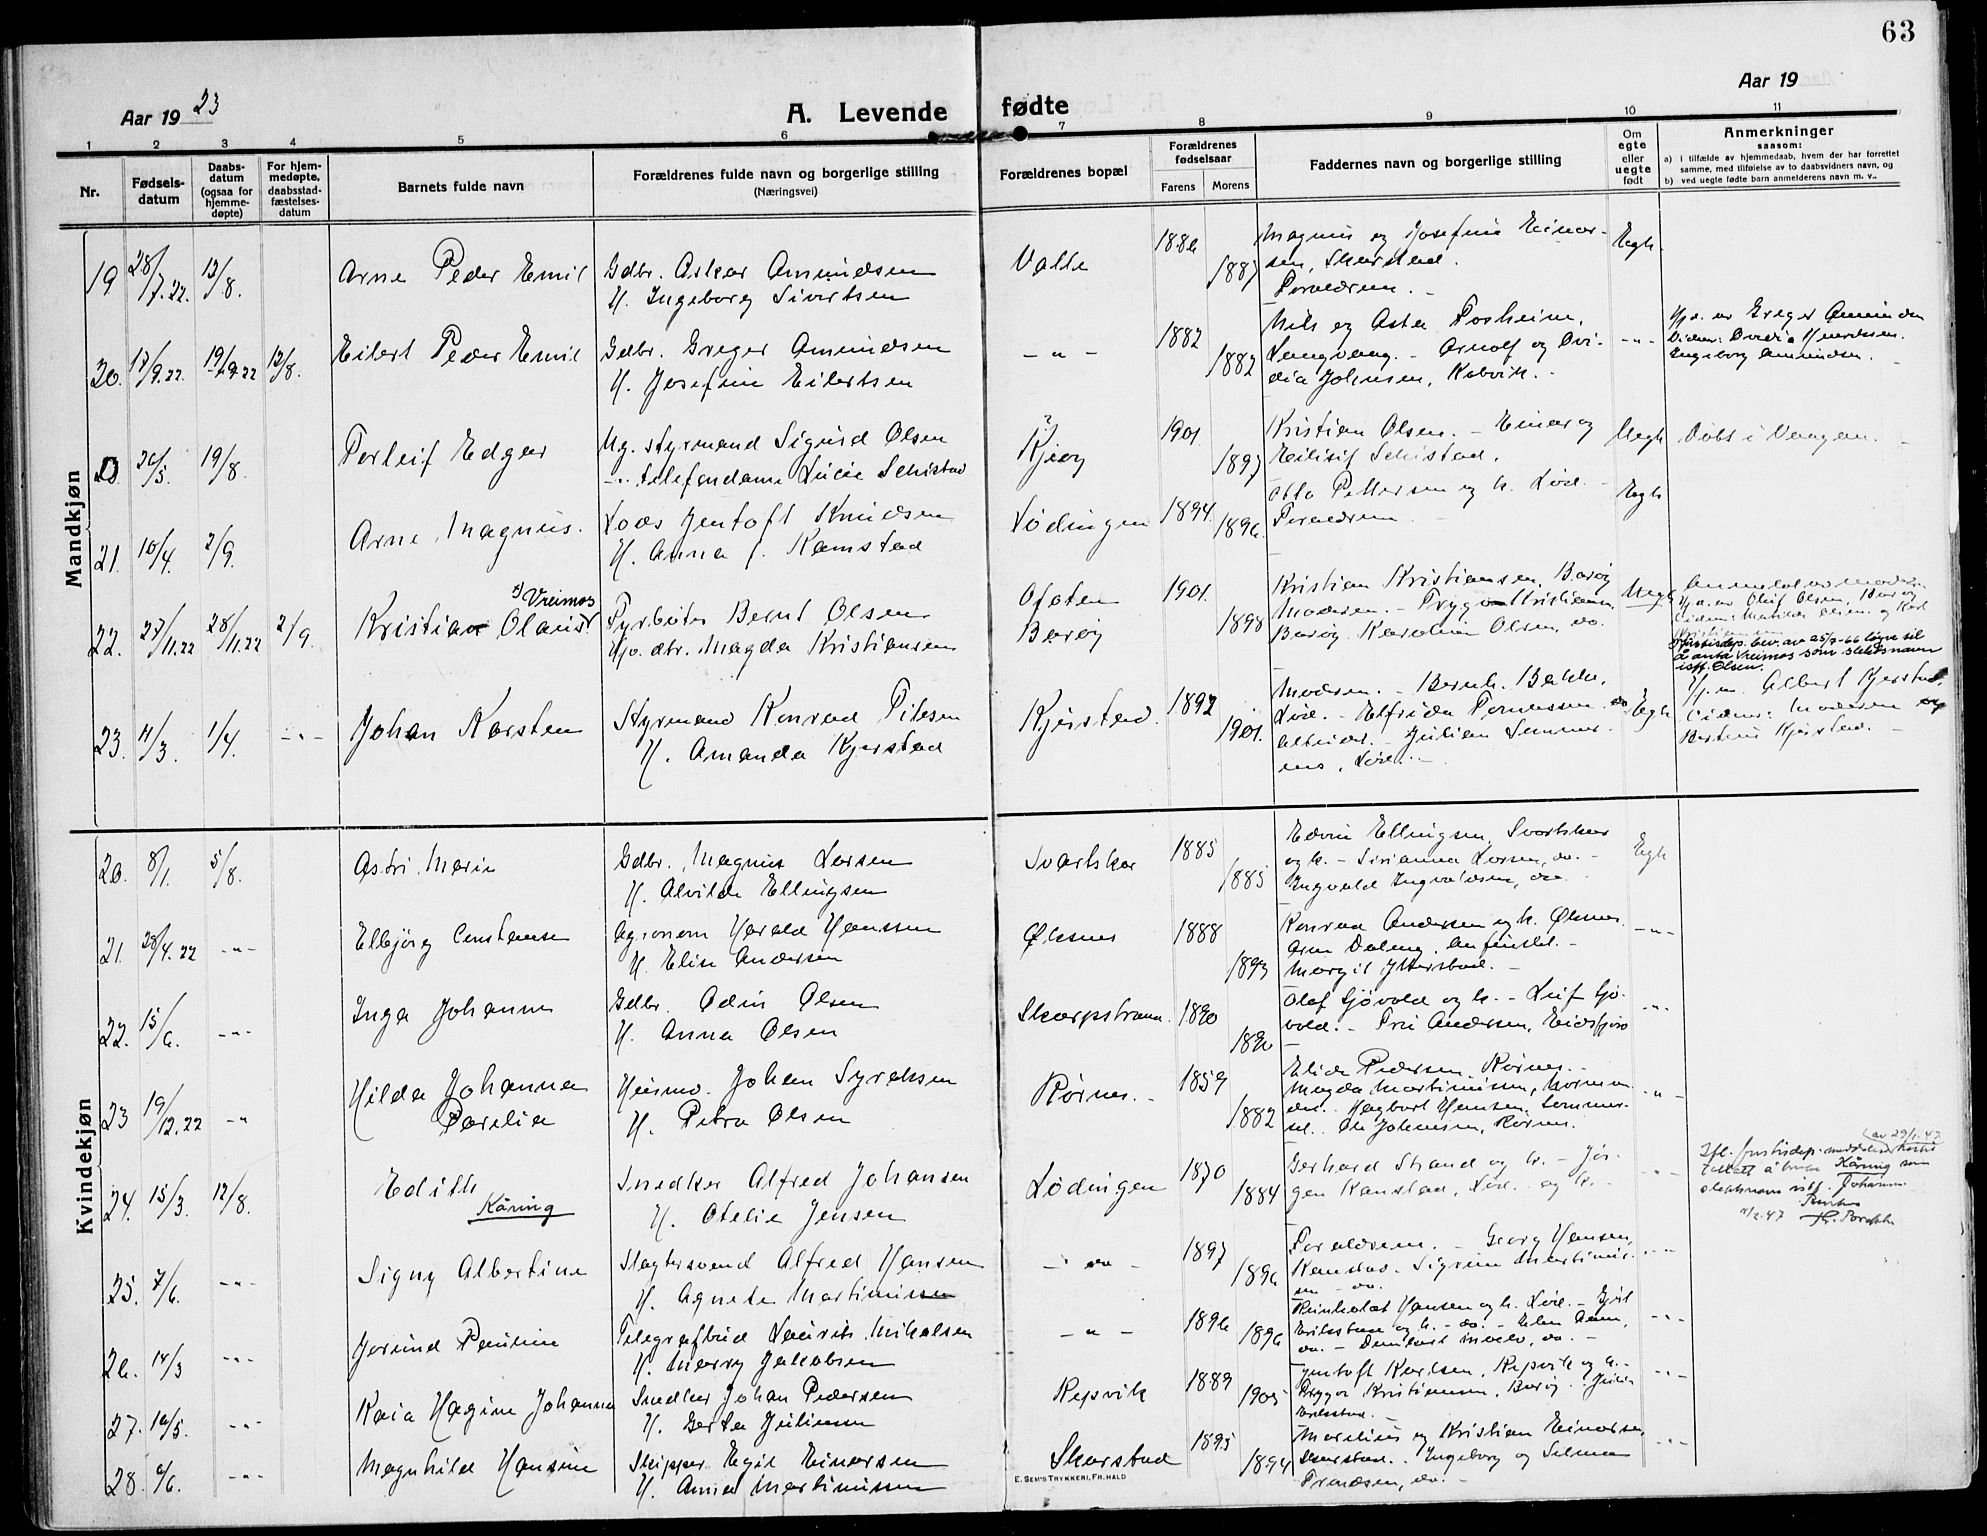 63
Aar 1923
A. Levende fødte
Aar 19
1 2 3 4 5 6 7 8 9 10 11
Nr.
Fødsels-
datum
Daabs-
datum
(ogsaa for
hjemme-
døpte)
For hjem-
medøpte,
daabsstad-
fæstelses-
datum
Barnets fulde navn
Forældrenes fulde navn og borgerlige stilling
(Næringsvei)
Forældrenes bopæl
Forældrenes
fødselsaar
Farens Morens
Faddernes navn og borgerlige stilling
Om
egte
eller
uegte
født
Anmerkninger
saasom:
a) i tilfælde av hjemmedaab, hvem der har forrettet
samme, med tilføielse av to daabsvidners navn, og
b) ved uegte fødte barn anmelderens navn m. v..
Mandkjøn
19 28/7.22. 13/8. Arne Peder Emil
Gdbr. Oskar Amundsen
H. Ingeborg Sivertsen
Valle 1886 1887
Magnus og Josefine Einar-
sen, Skarstad.
Foreldrene. -
Egte
20. 17/9.22. 19/9.22 13/8. Eilert Peder Emil
Gdbr. Greger Amundsen
H. Josefine Eilertsen
- " - 1882 1882
Nils og Asta Forsheim,
Langvaag. - Arnolf og Ovi-
dia Johnsen, Kobvik. -
- " -
Hj.d. av Greger Amundsen
Ingeborg Amundsen.
0 26/5. 19/8. Torleif Edgar
Ug. styrmand Sigurd Olsen
- " - telefondame Lucie Schistad
Kjeøy 1901. 1897
Kristian Olsen. - Einar og
Eilisif Schistad.
Uegte
Døbt i Vaagan. -
21. 10/4. 2/9. Arne Magnus.
Lods Jentoft Knudsen
H. Anna J. Kanstad
Lødingen 1894. 1896.
Otto Pettersen og h. Lød. -
Foreldrene. -
Egte
22. 27/11.22 28/11.22 2/9. Kristian Olaus Vreimos
Fyrbøter Bernt Olsen
Hjv. dtr. Magda Kristiansen
Ofoten
Barøy
1901. 1898
Kristian Kristiansen, Barøy
Moderen. - Trygve Kristiansen
Barøy. Karoline Olsen, do.
Uegte
Anmeldt av moderen
Hj.d. av Oluf Olsen, Barøy
Justisdep. bev. av 25/2-66 løyve til
å anta Vreimos som slektsnavn
istf. Olsen.
23. 11/3. 1/4. - " - Johan Karsten
Styrmand Konrad Tilesen
H. Amanda Kjerstad
Kjerstad. 1892 1901.
Moderen. - Bernh. Bakke,
Lød. - Elfrida Tomassen do
Egte
Hj.d. Albert Kjerstad.
Vidner: Moderen og
Kjerstad. -
Kvindekjøn
20. 8/1. 5/8. Astri Marie
Gdbr. Magnus Larsen
H. Alvilde Ellingsen
Svartskar 1885 1885
Edvin Ellingsen, Svartskar
og h. - Sirianna Larsen, do. -
Ingvald Ingvaldsen, do.
Egte
21. 28/4.22 - " - Elbjørg Constanse
Agronom Harald Hanssen
H. Elise Andersen
Øksnes 1888 1893
Konrad Andersen og h. Øksnes.
Margit Ytterstad. -
- " -
22. 15/6. - " - Inga Johanne
Gdbr. Odin Olsen
H. Anna Olsen
Skarpstrand. 1890 1890
Olaf Sjøvold og h. - Leif Sjø-
vold. - Tri Andersen, Eidsfjord
- " -
23 19/12.22 - " Hilda Johanna
Parelia
Husmd. Johan Syraksen
H. Petra Olsen
Rørnes. - 1859 1882
Elida Pedersen, Rørnes. -
Magda Martinussen,
Hagbart Hansen, Sommer-
set. Ole Johansen, Rørnes.
- " -
24. 15/3. 12/8. Edith
Kåring
Snedker Alfred Johansen
H. Otelie Jensen
Lødingen 1870 1884
Gerhard Strand og h. - Jør-
gen Kanstad, Lød. og h. -
- " -
av 29/1.47
Ifl. justisdep. meddelelse
tillatt å bruke Kåring som
slektsnavn istf. Johansen
11/2.47
25. 7/6. - " - Signy Albertine
Slagtersvend Alfred Hansen
H. Agnete Martinussen
- " - 1897 1896
Foreldrene. - Georg Hansen,
Kanstad. Sigrun Martinus-
sen - do.
- " -
26. 14/3 - " - Jorund Pauline
Telegrafbud Laurits Mikalsen
H. Marry Jakobsen
- " - 1896 1896
Reinholdt Hansen og h. Lød. -
- " -
27. 10/5. - " - Kaia Hagine Johanna
Snedker Johan Pedersen
H. Gerda Juliussen
Repvik 1889 1905
Jentoft Karlsen, Repvik og h. -
Trygve Kristiansen, Barøy.
- " -
28. 9/6. - " - Magnhild Hansine
Skipper Egil Einarsen
H. Anna Martinussen
Skarstad 1895 1894
Marelius og Kristian Einarsen,
Skarstad. Ingeborg og Selma
- " -
E. SEM'S TRYKKERI, FR.HALD